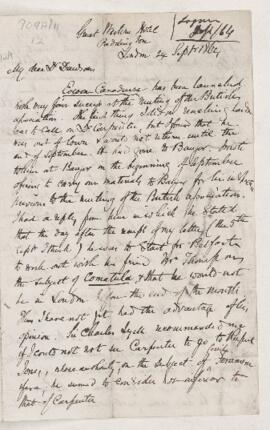 709A/11
12
Logan
Sept/64
Great Western Hotel
Paddington
London 24 Sept 1864
My dear Dr Dawson
Eozoon Canadense has been launched
with very fair success at the meeting of the British
Association. The first thing I did on reaching London
was to call on Dr Carpenter, but I found that he
was out of town & would not return until the
end of September. He had gone to Bangor. I wrote
to him at Bangor in the beginning of September
offering to carry our materials to Bangor for his
previous to the meeting of the British Association.
I had a reply from him in which he stated
that the day after the receipt of my letter (the 5th
Sept I think) he was to start for Belfast
to work out with his friend Mr Thomson
the subject of Comatula & that he would not
be in London till the end of the month
Thus I have not yet had the advantage of his
opinion. Sir Charles Lyell recommended me
if I could not see Carpenter to go to Rupert
Jones, whose authority on the subject of foramin-
ifera he seemed to consider not inferior to
that of Carpenter